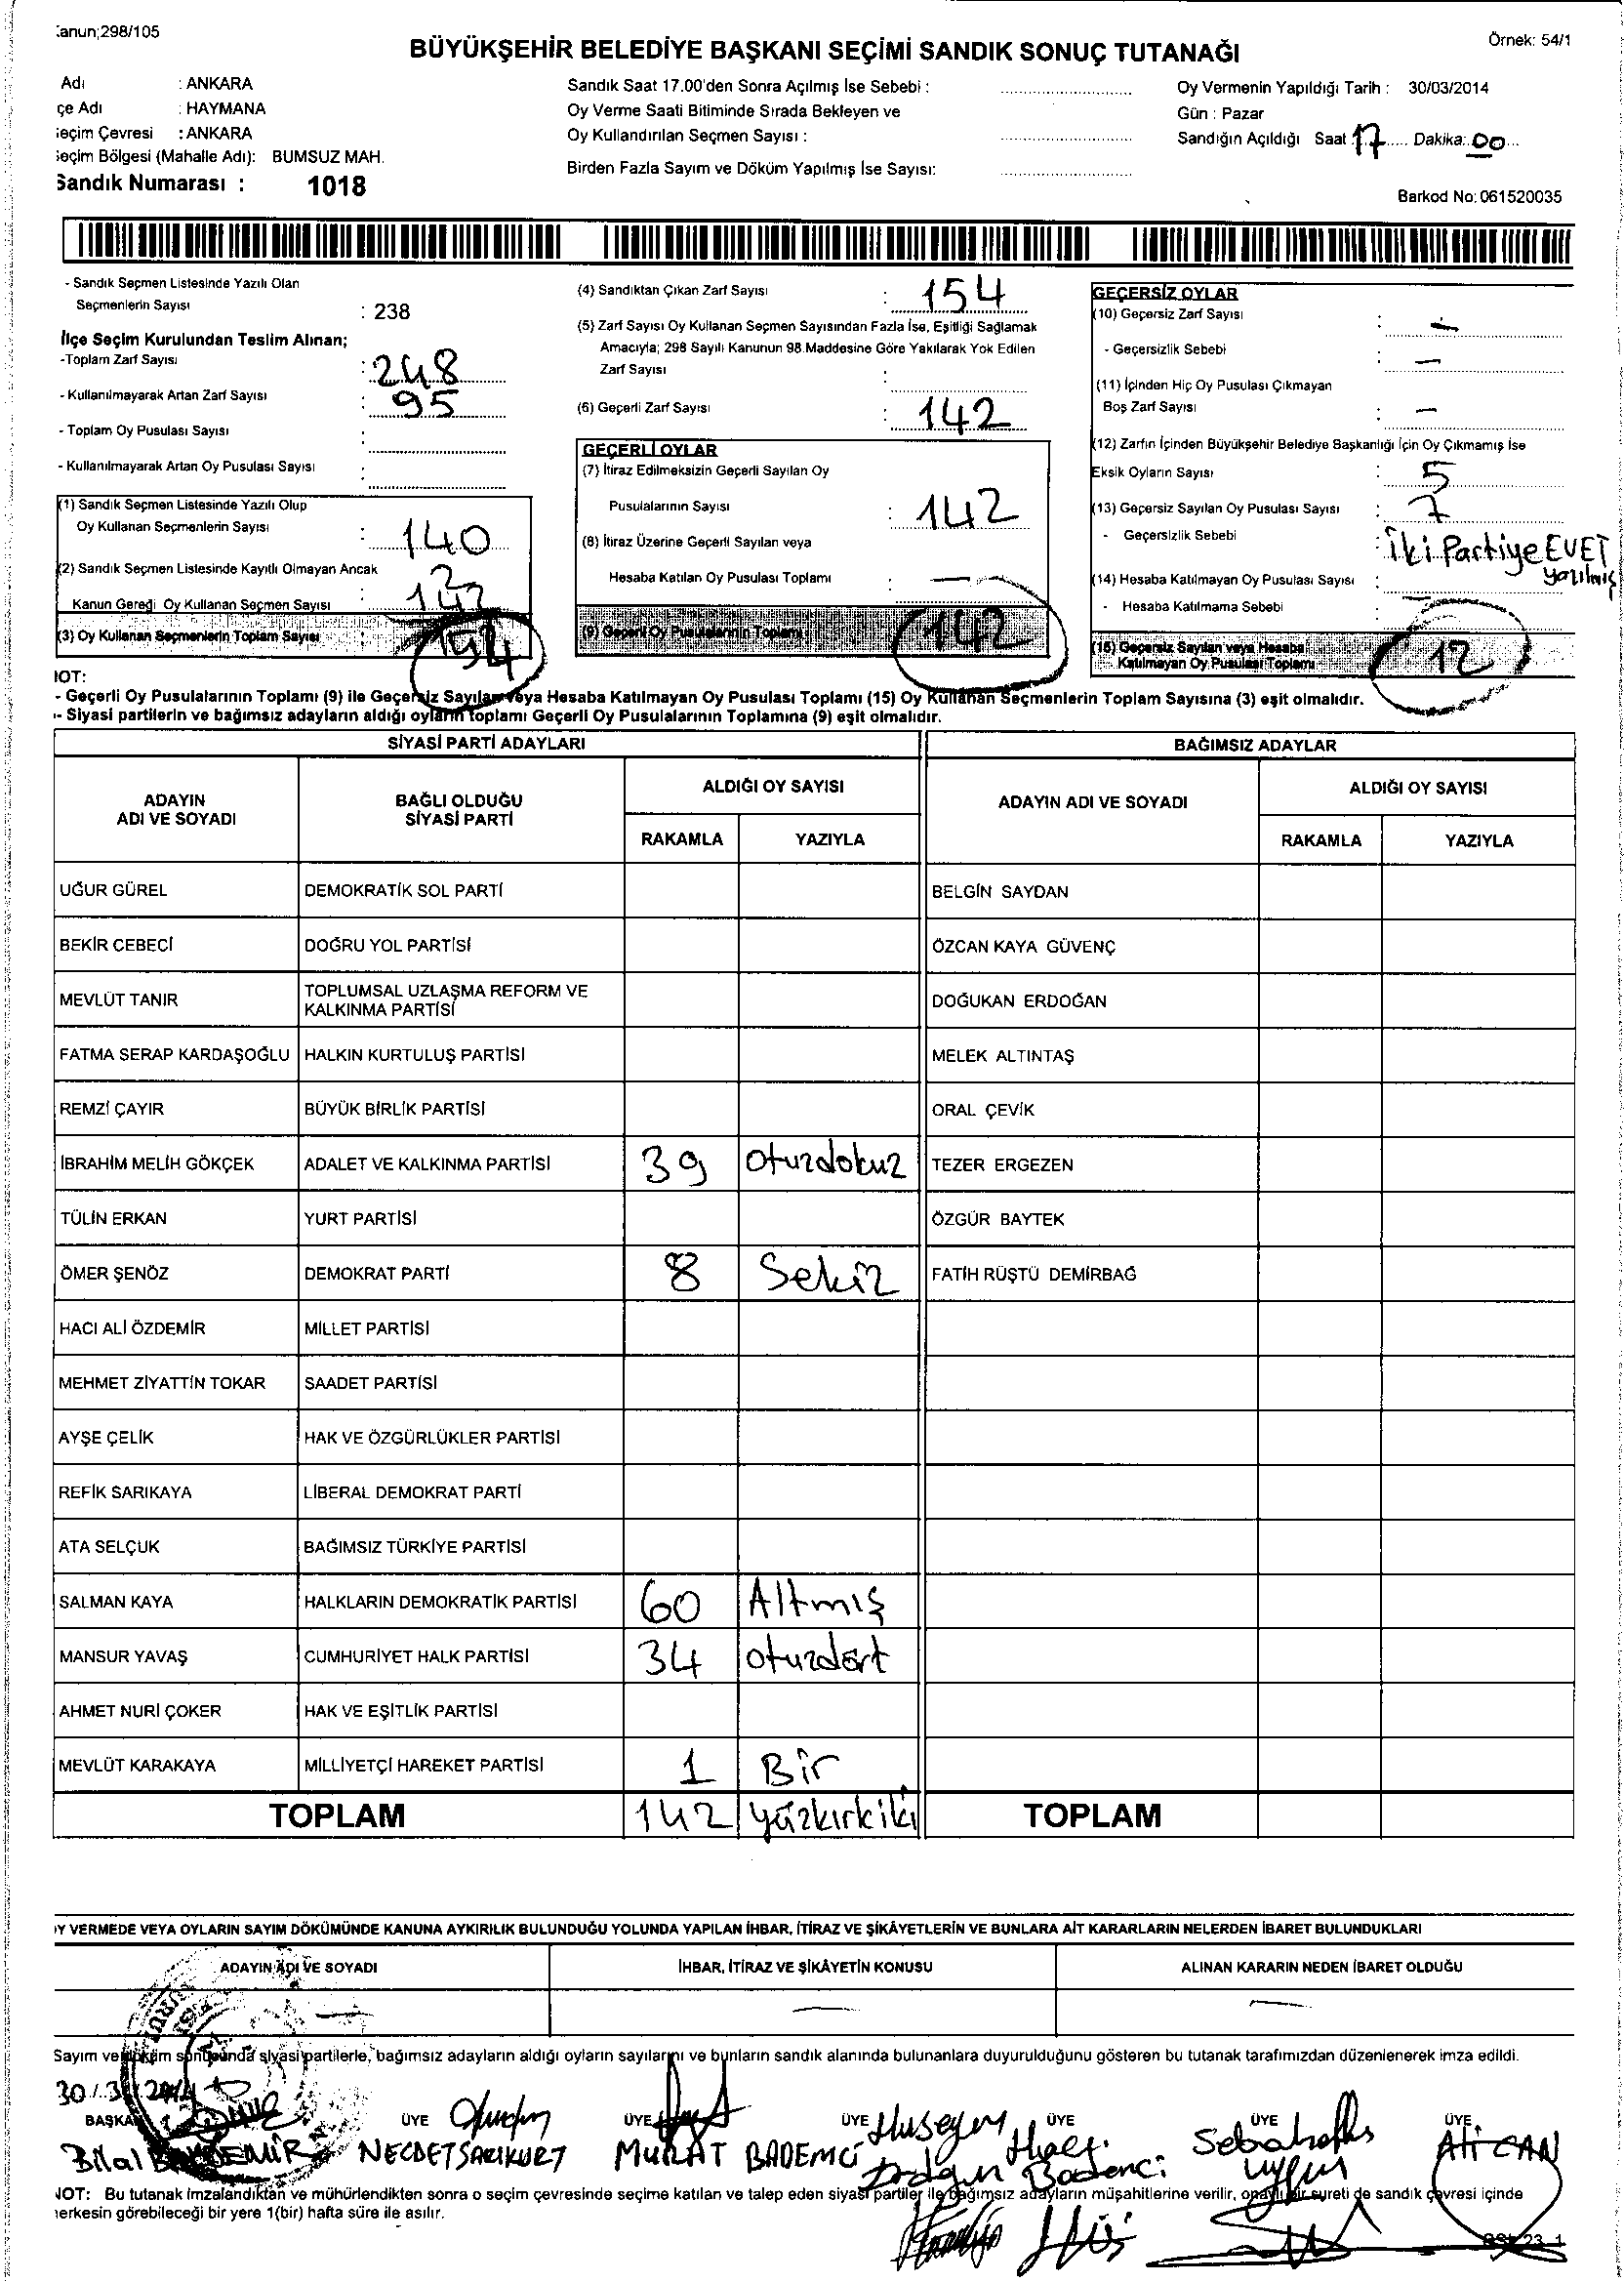 Kanun;298/105
Örnek: 54/1
BÜYÜKŞEHİR BELEDİYE BAŞKANI SEÇİMİ SANDIK SONUÇ TUTANAĞI
Adı : ANKARA
çe Adı : HAYMANA
eçim Çevresi : ANKARA
eçim Bölgesi (Mahalle Adı): BUMSUZ MAH.
Sandık Numarası : 1018
Sandık Saat 17.00'den Sonra Açılmış İse Sebebi :
Oy Verme Saati Bitiminde Sırada Bekleyen ve
Oy Kullandırılan Seçmen Sayısı :
Birden Fazla Sayım ve Döküm Yapılmış İse Sayısı:
Oy Vermenin Yapıldığı Tarih : 30/03/2014
Gün : Pazar
Sandığın Açıldığı Saat 17 Dakika: 00
Barkod No: 061520035
- Sandık Seçmen Listesinde Yazılı Olan
Seçmenlerin Sayısı : 238
İlçe Seçim Kurulundan Teslim Alınan;
-Toplam Zarf Sayısı : 248
- Kullanılmayarak Artan Zarf Sayısı : 95
- Toplam Oy Pusulası Sayısı :
- Kullanılmayarak Artan Oy Pusulası Sayısı :
(1) Sandık Seçmen Listesinde Yazılı Olup
Oy Kullanan Seçmenlerin Sayısı : 140
(2) Sandık Seçmen Listesinde Kayıtlı Olmayan Ancak
Kanun Gereği Oy Kullanan Seçmen Sayısı :
(3) Oy Kullanan Seçmenlerin Toplam Sayısı : 154
(4) Sandıktan Çıkan Zarf Sayısı : 154
(5) Zarf Sayısı Oy Kullanan Seçmen Sayısından Fazla İse, Eşitliği Sağlamak
Amacıyla; 298 Sayılı Kanunun 98.Maddesine Göre Yakılarak Yok Edilen
Zarf Sayısı :
(6) Geçerli Zarf Sayısı : 142
GEÇERLİ OYLAR
(7) İtiraz Edilmeksizin Geçerli Sayılan Oy
Pusulalarının Sayısı : 142
(8) İtiraz Üzerine Geçerli Sayılan veya
Hesaba Katılan Oy Pusulası Toplamı : —
(9) Geçerli Oy Pusulalarının Toplamı 142
GEÇERSİZ OYLAR
(10) Geçersiz Zarf Sayısı : —
- Geçersizlik Sebebi : —
(11) İçinden Hiç Oy Pusulası Çıkmayan
Boş Zarf Sayısı : —
(12) Zarfın İçinden Büyükşehir Belediye Başkanlığı İçin Oy Çıkmamış İse
Eksik Oyların Sayısı : 5
(13) Geçersiz Sayılan Oy Pusulası Sayısı : 7
- Geçersizlik Sebebi : İki Partiye EVET yazılmış
(14) Hesaba Katılmayan Oy Pusulası Sayısı :
- Hesaba Katılmama Sebebi :
(15) Geçersiz Sayılan veya Hesaba
Katılmayan Oy Pusulası Toplamı 12
NOT:
- Geçerli Oy Pusulalarının Toplamı (9) ile Geçersiz Sayılan veya Hesaba Katılmayan Oy Pusulası Toplamı (15) Oy Kullanan Seçmenlerin Toplam Sayısına (3) eşit olmalıdır.
- Siyasi partilerin ve bağımsız adayların aldığı oyların toplamı Geçerli Oy Pusulalarının Toplamına (9) eşit olmalıdır.
SİYASİ PARTİ ADAYLARI BAĞIMSIZ ADAYLAR
ADAYIN ADI VE SOYADI BAĞLI OLDUĞU SİYASİ PARTİ ALDIĞI OY SAYISI ADAYIN ADI VE SOYADI ALDIĞI OY SAYISI
RAKAMLA YAZIYLA RAKAMLA YAZIYLA
UĞUR GÜREL DEMOKRATİK SOL PARTİ BELGİN SAYDAN
BEKİR CEBECİ DOĞRU YOL PARTİSİ ÖZCAN KAYA GÜVENÇ
MEVLÜT TANIR TOPLUMSAL UZLAŞMA REFORM VE KALKINMA PARTİSİ DOĞUKAN ERDOĞAN
FATMA SERAP KARDAŞOĞLU HALKIN KURTULUŞ PARTİSİ MELEK ALTINTAŞ
REMZİ ÇAYIR BÜYÜK BİRLİK PARTİSİ ORAL ÇEVİK
İBRAHİM MELİH GÖKÇEK ADALET VE KALKINMA PARTİSİ 39 otuzdokuz TEZER ERGEZEN
TÜLİN ERKAN YURT PARTİSİ ÖZGÜR BAYTEK
ÖMER ŞENÖZ DEMOKRAT PARTİ 8 Sekiz FATİH RÜŞTÜ DEMİRBAĞ
HACI ALİ ÖZDEMİR MİLLET PARTİSİ
MEHMET ZİYATTİN TOKAR SAADET PARTİSİ
AYŞE ÇELİK HAK VE ÖZGÜRLÜKLER PARTİSİ
REFİK SARIKAYA LİBERAL DEMOKRAT PARTİ
ATA SELÇUK BAĞIMSIZ TÜRKİYE PARTİSİ
SALMAN KAYA HALKLARIN DEMOKRATİK PARTİSİ 60 Altmış
MANSUR YAVAŞ CUMHURİYET HALK PARTİSİ 34 otuzdört
AHMET NURİ ÇOKER HAK VE EŞİTLİK PARTİSİ
MEVLÜT KARAKAYA MİLLİYETÇİ HAREKET PARTİSİ 1 Bir
TOPLAM 142 yüzkırkiki TOPLAM
OY VERMEDE VEYA OYLARIN SAYIM DÖKÜMÜNDE KANUNA AYKIRILIK BULUNDUĞU YOLUNDA YAPILAN İHBAR, İTİRAZ VE ŞİKÂYETLERİN VE BUNLARA AİT KARARLARIN NELERDEN İBARET BULUNDUKLARI
ADAYIN ADI VE SOYADI İHBAR, İTİRAZ VE ŞİKÂYETİN KONUSU ALINAN KARARIN NEDEN İBARET OLDUĞU
— — —
Sayım ve döküm sonucunda siyasi partilerle, bağımsız adayların aldığı oyların sayılarını ve bunların sandık alanında bulunanlara duyurulduğunu gösteren bu tutanak tarafımızdan düzenlenerek imza edildi.
30/3/2014
BAŞKAN ÜYE ÜYE ÜYE ÜYE ÜYE ÜYE
Bilal NECDET SARIKURT MURAT BADEMCİ Huseyın Halil Bademci Sebahattin Uygun Ali CAN
NOT: Bu tutanak imzalandıktan ve mühürlendikten sonra o seçim çevresinde seçime katılan ve talep eden siyasi partiler ile bağımsız adayların müşahitlerine verilir, onaylı bir sureti de sandık çevresi içinde
herkesin görebileceği bir yere 1(bir) hafta süre ile asılır.